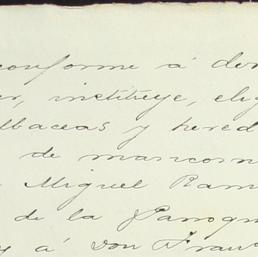 conforme á der
er, instituye, elig
albaceas y hered
de mancomu
Miguel Ram
de la Parroqu
á Don Fran